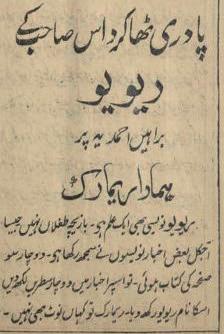 پادری ٹھاکر داس صاحب کے
ریویو
براہین احمدیہ پر
ہمارا ریمارک
ریویو نویسی بھی ایک علم ہی ۔ بازیچہ طفلاں نہیں جیسا
آجکل بعض اخبار نویسوں نے سمجھ رکھا ہی ۔ دو چار سو
صفحہ کی کتاب ہوئی ۔ تو اسپر اخبار میں دو چار سطریں لکھدیں
اسکا نام ریویو رکھ دیا ۔ ریمارک تو کہاں نوٹ بھی نہیں ۔